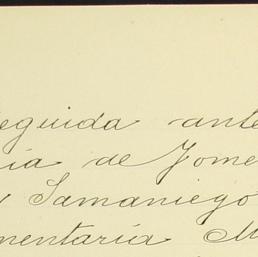 eguida ante
ia de Fome
Samaniego
mentaria M